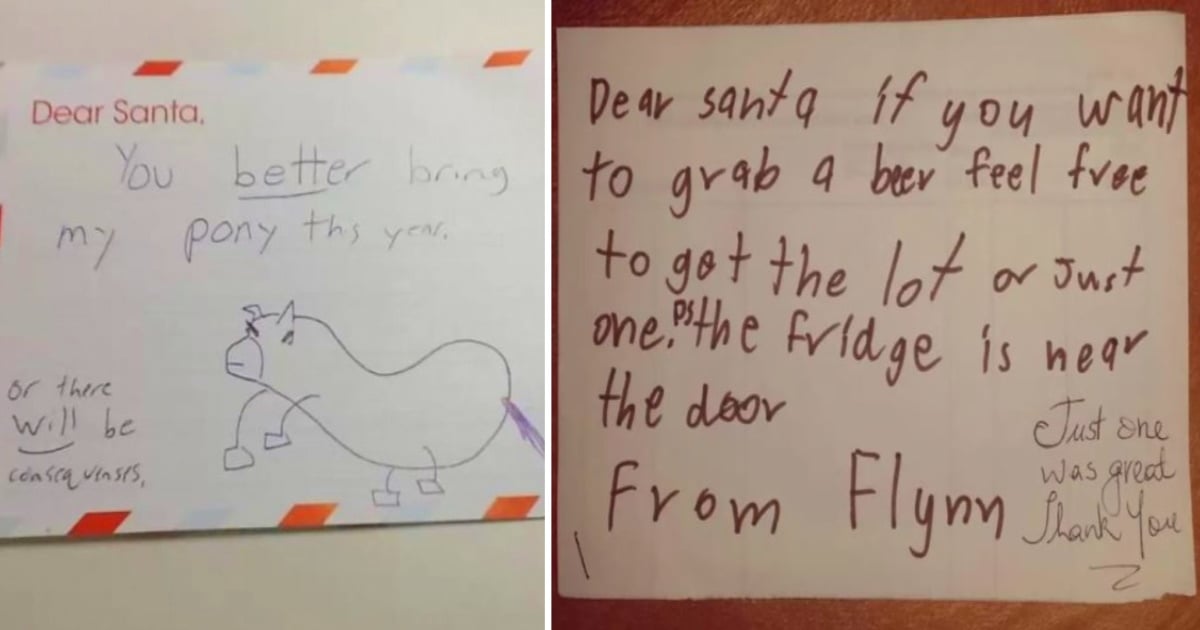 Dear Santa,
You better bring
my pony ths year.
or there
will be
consequenses,
Dear santa if you want
to grab a beer feel free
to get the lot or Just
one. Ps the fridge is near
the door
From Flynn
Just one
was great
Thank You